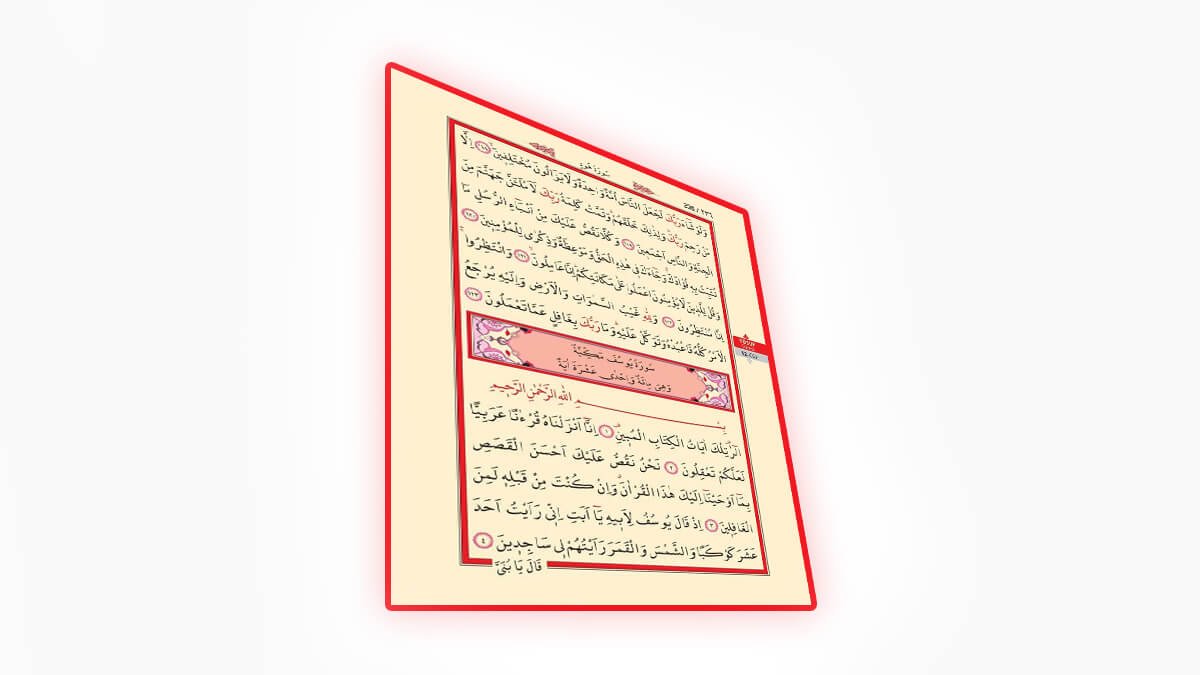 سُورَةُ هُودٍ
236 / ٢٣٦
وَلَوْ شَاءَ رَبُّكَ لَجَعَلَ النَّاسَ اُمَّةً وَاحِدَةً وَلَا يَزَالُونَ مُخْتَلِفِينَ ﴿١١٨﴾ اِلَّا
مَنْ رَحِمَ رَبُّكَ وَلِذٰلِكَ خَلَقَهُمْ وَتَمَّتْ كَلِمَةُ رَبِّكَ لَاَمْلَـَٔنَّ جَهَنَّمَ مِنَ
الْجِنَّةِ وَالنَّاسِ اَجْمَعِينَ ﴿١١٩﴾ وَكُلًّا نَقُصُّ عَلَيْكَ مِنْ اَنْبَاءِ الرُّسُلِ مَا
نُثَبِّتُ بِهِ فُؤَادَكَ وَجَاءَكَ فِى هٰذِهِ الْحَقُّ وَمَوْعِظَةٌ وَذِكْرٰى لِلْمُؤْمِنِينَ ﴿١٢٠﴾
وَقُلْ لِلَّذِينَ لَا يُؤْمِنُونَ اعْمَلُوا عَلٰى مَكَانَتِكُمْ اِنَّا عَامِلُونَ ﴿١٢١﴾ وَانْتَظِرُوا
اِنَّا مُنْتَظِرُونَ ﴿١٢٢﴾ وَلِلّٰهِ غَيْبُ السَّمٰوَاتِ وَالْاَرْضِ وَاِلَيْهِ يُرْجَعُ
الْاَمْرُ كُلُّهُ فَاعْبُدْهُ وَتَوَكَّلْ عَلَيْهِ وَمَا رَبُّكَ بِغَافِلٍ عَمَّا تَعْمَلُونَ ﴿١٢٣﴾
سُورَةُ يُوسُفَ مَكِّيَّةٌ
وَهِىَ مِائَةٌ وَاِحْدٰى عَشْرَةَ اٰيَةً
بِسْمِ اللّٰهِ الرَّحْمٰنِ الرَّحِيمِ
الٓرٰ تِلْكَ اٰيَاتُ الْكِتَابِ الْمُبِينِ ﴿١﴾ اِنَّا اَنْزَلْنَاهُ قُرْءٰنًا عَرَبِيًّا
لَعَلَّكُمْ تَعْقِلُونَ ﴿٢﴾ نَحْنُ نَقُصُّ عَلَيْكَ اَحْسَنَ الْقَصَصِ
بِمَا اَوْحَيْنَا اِلَيْكَ هٰذَا الْقُرْاٰنَ وَاِنْ كُنْتَ مِنْ قَبْلِهِ لَمِنَ
الْغَافِلِينَ ﴿٣﴾ اِذْ قَالَ يُوسُفُ لِاَبِيهِ يَا اَبَتِ اِنِّى رَاَيْتُ اَحَدَ
عَشَرَ كَوْكَبًا وَالشَّمْسَ وَالْقَمَرَ رَاَيْتُهُمْ لِى سَاجِدِينَ ﴿٤﴾
قَالَ يَا بُنَىَّ